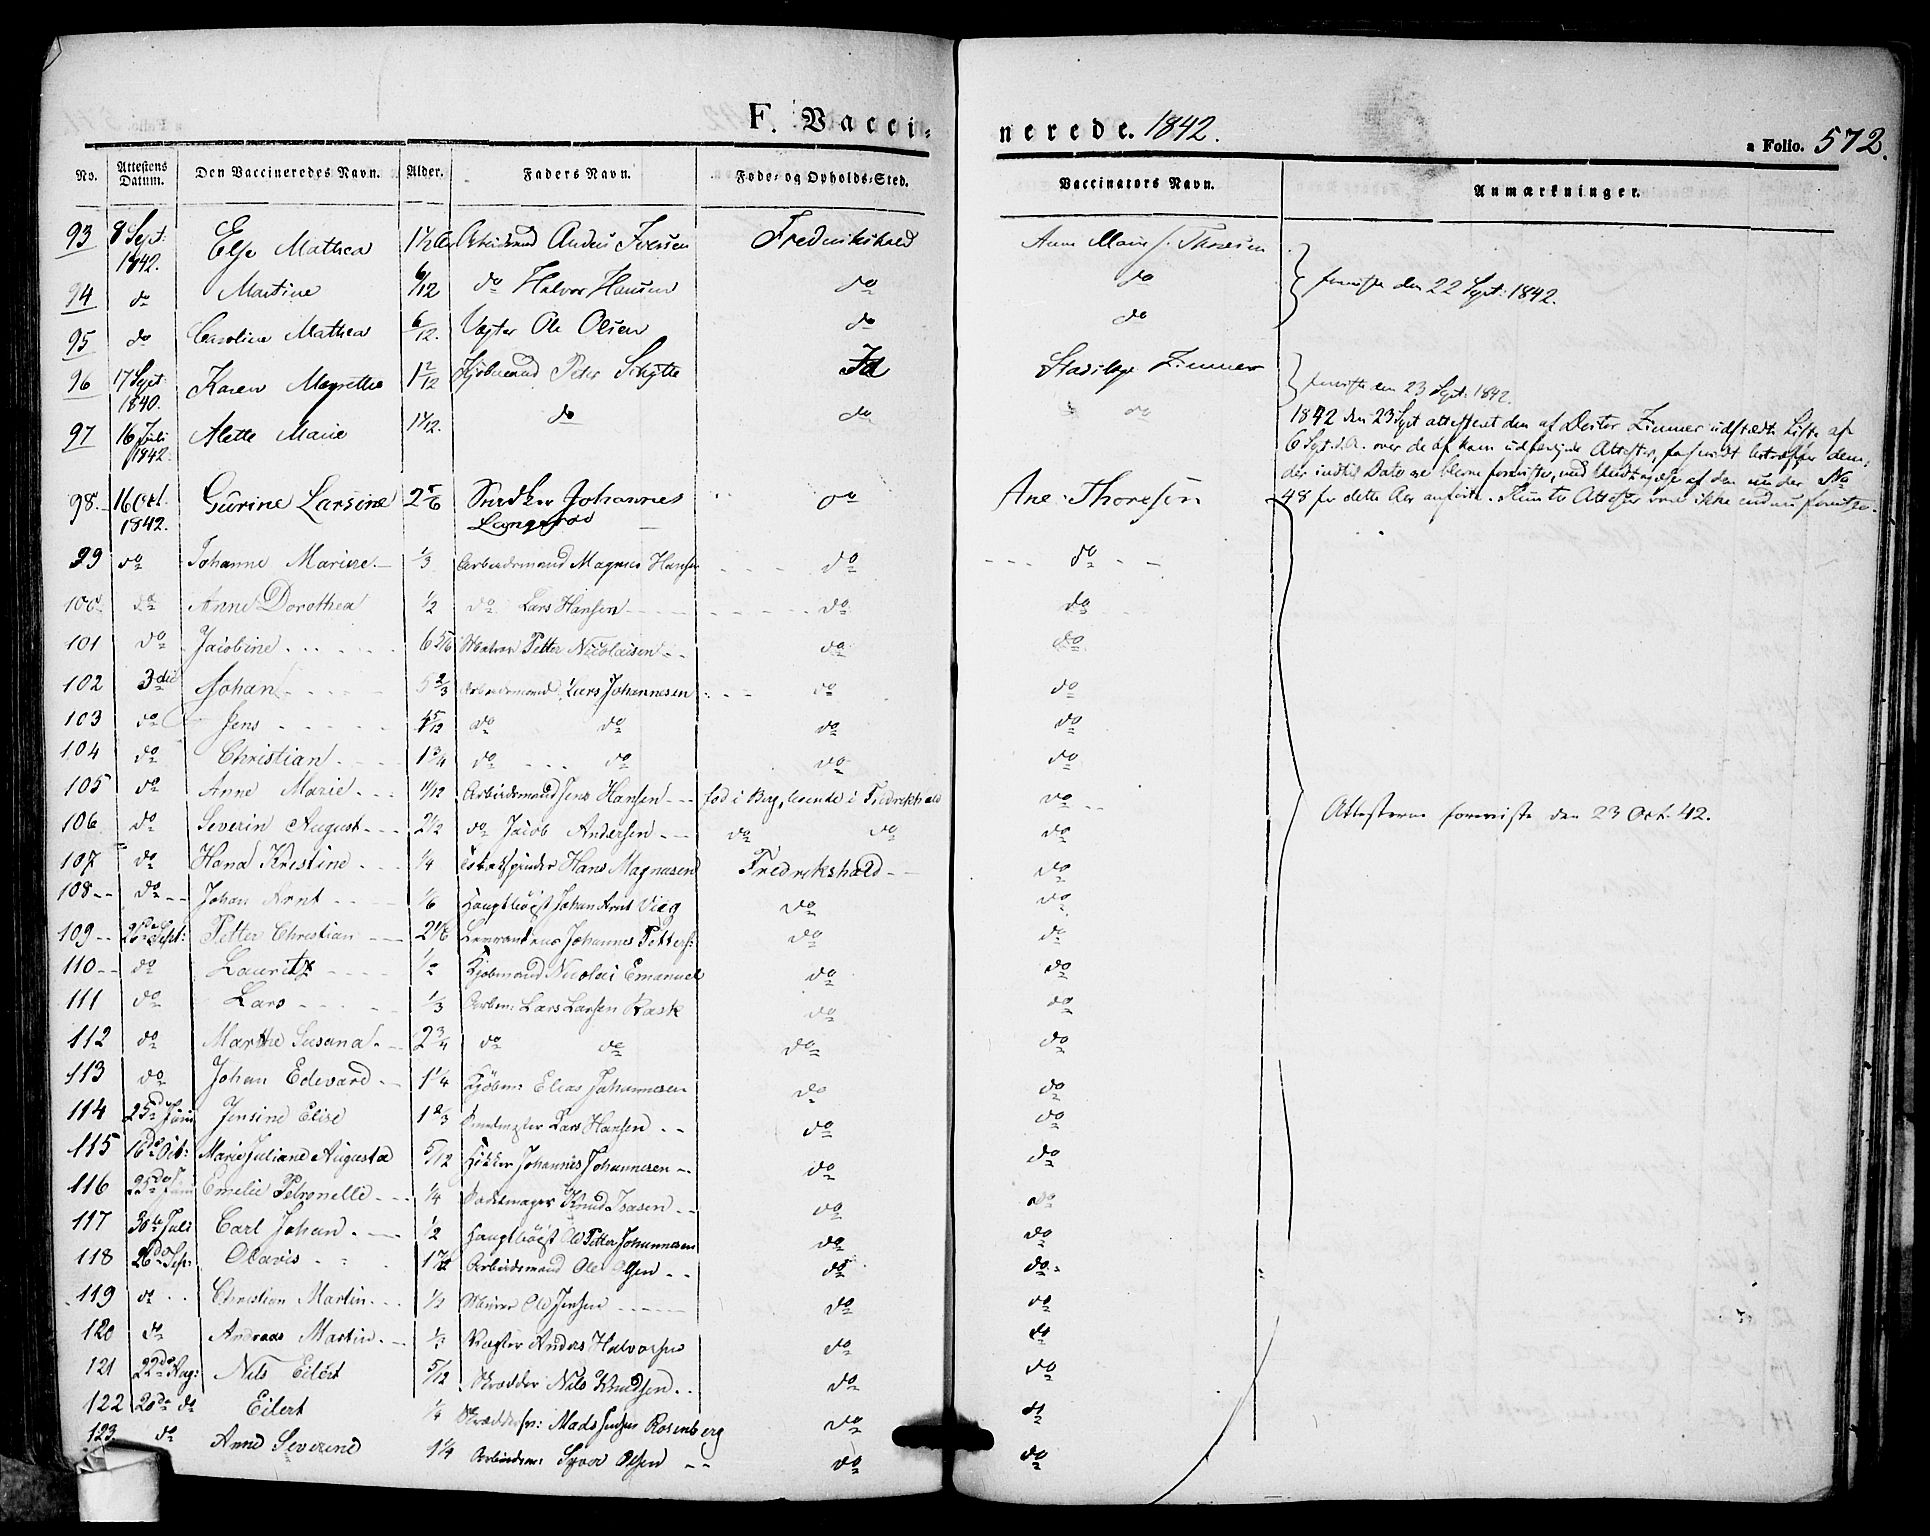 F. Vacci-
nerede. 1842.
a Folio. 572.
No. Attestens Datum. Den Vaccineredes Navn. Alder. Faders Navn. Føde- og Opholds-Sted. Vaccinators Navn. Anmærkninger.
93 8 Sept: 1842. Else Mathea Anders Iversen Frederikshald Anne Marie Thoresen
94 do Martine 6/12 do Halvor Hansen do do
forevist den 22 Sept: 1842.
95 do Caroline Mathea 6/12. Vægter Ole Olsen do do
96 17 Sept 1840. Karen Magrethe 1 2/12 Kjøbmand Peter Schytte Id Zimmer
forevist den 23 Sept: 1842.
97 16 Juli 1842. Alette Marie 11/12. do do do
1842 den 23 Sept attesteret den af Doctor Zimmer udstædte Liste af
6 Sept. d.A. over de af ham udfærdigede Attester, forsaavidt betræffer dem,
der indtil Dato ere blevne foreviste, med Undtagelse af den under No
48 for dette Aar anførte. Attester vare ikke endnu
98. 16 Oct. 1842. Gurine Larsine 2 5/6 Snedker Johannes do Ane Thoresen
Langsrød
99 do Johanne Marie 1/3 Arbeidsmand Magnus Hansen do do
100. do Anne Dorothea 1/2 do Lars Hansen do do
101 do Jacobine 6 5/6 Petter Nicolaisen do do
102 3die Johan 5 2/3 Arbeidsmand Lars Johannesen do do
103 do Jens do do do do
104 do Christian 1 3/4 do do do do
105 do Anne Marie 11/12 Arbeidsmand Jens Hansen fød i Berg, boende i Fredrikshald do
106 do Severin August 2 1/2 do Jacob Andersen do do do
Attesterne foreviste den 23 Oct. 42.
107 do Hana Kristine 1/4 Tobakspinder Hans Magnusen Fredrikshald do
108 do Johan Arnt 1/6 Johan Arnt Vieg do do
109 Sept: Petter Christian 2 1/6 Johannes Petters: do do
110 do Lauritz 1/2 Kjøbmand Nicolai Emanuel do do
111 do Lars 1/3 Arbm: Lars Larsen Rask do do
112 do Marthe Susana 2 3/4 do do do do
113 do Johan Edevard 1 1/4 Kjøbm: Elias Johannesen do do
114 25de Juni Jensine Elise 1 2/3 Lars Hansen do do
115 16de Oct: Marie Juliane Augusta 5/12 Johannes Johannesen do do
116 25de Juni Emelie Petronelle 1/4 Sadelmager Knud Isasen do do
117 30te Juli Carl Johan 1/2 Ole Petter Johannesen do do
118 26de Sep: Olavis Arbeidsmand Ole Olsen do do
119 do Christian Martin 1/2 Murer Ole Jensen do do
120 do Andreas Martin 1/3 Vægter Anders Halvorsen do do
121 22de Aug: Nils Eilert 5/12 Skrædder Nils Knudsen do do
122 20de do Eilert 1/4 Mads Jensen Rosenberg do do
123 do Anne Severine 1 1/4 Arbeidsm: Syver Olsen do do